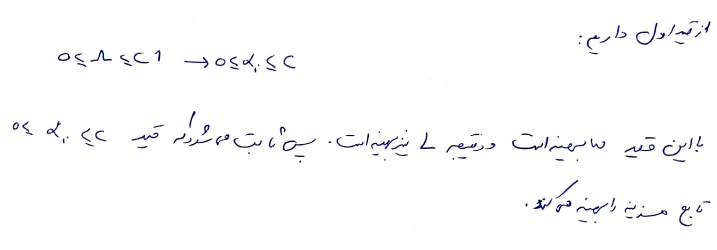 از قید اول داریم:
0 ≤ Λ ≤ C1 → 0 ≤ α_i ≤ C
با این قید مسا بهینه است و در نتیجه L نیز بهینه است. پس ثابت می شود که قید 0 ≤ α_i ≤ C
تابع هزینه را بهینه می کند.